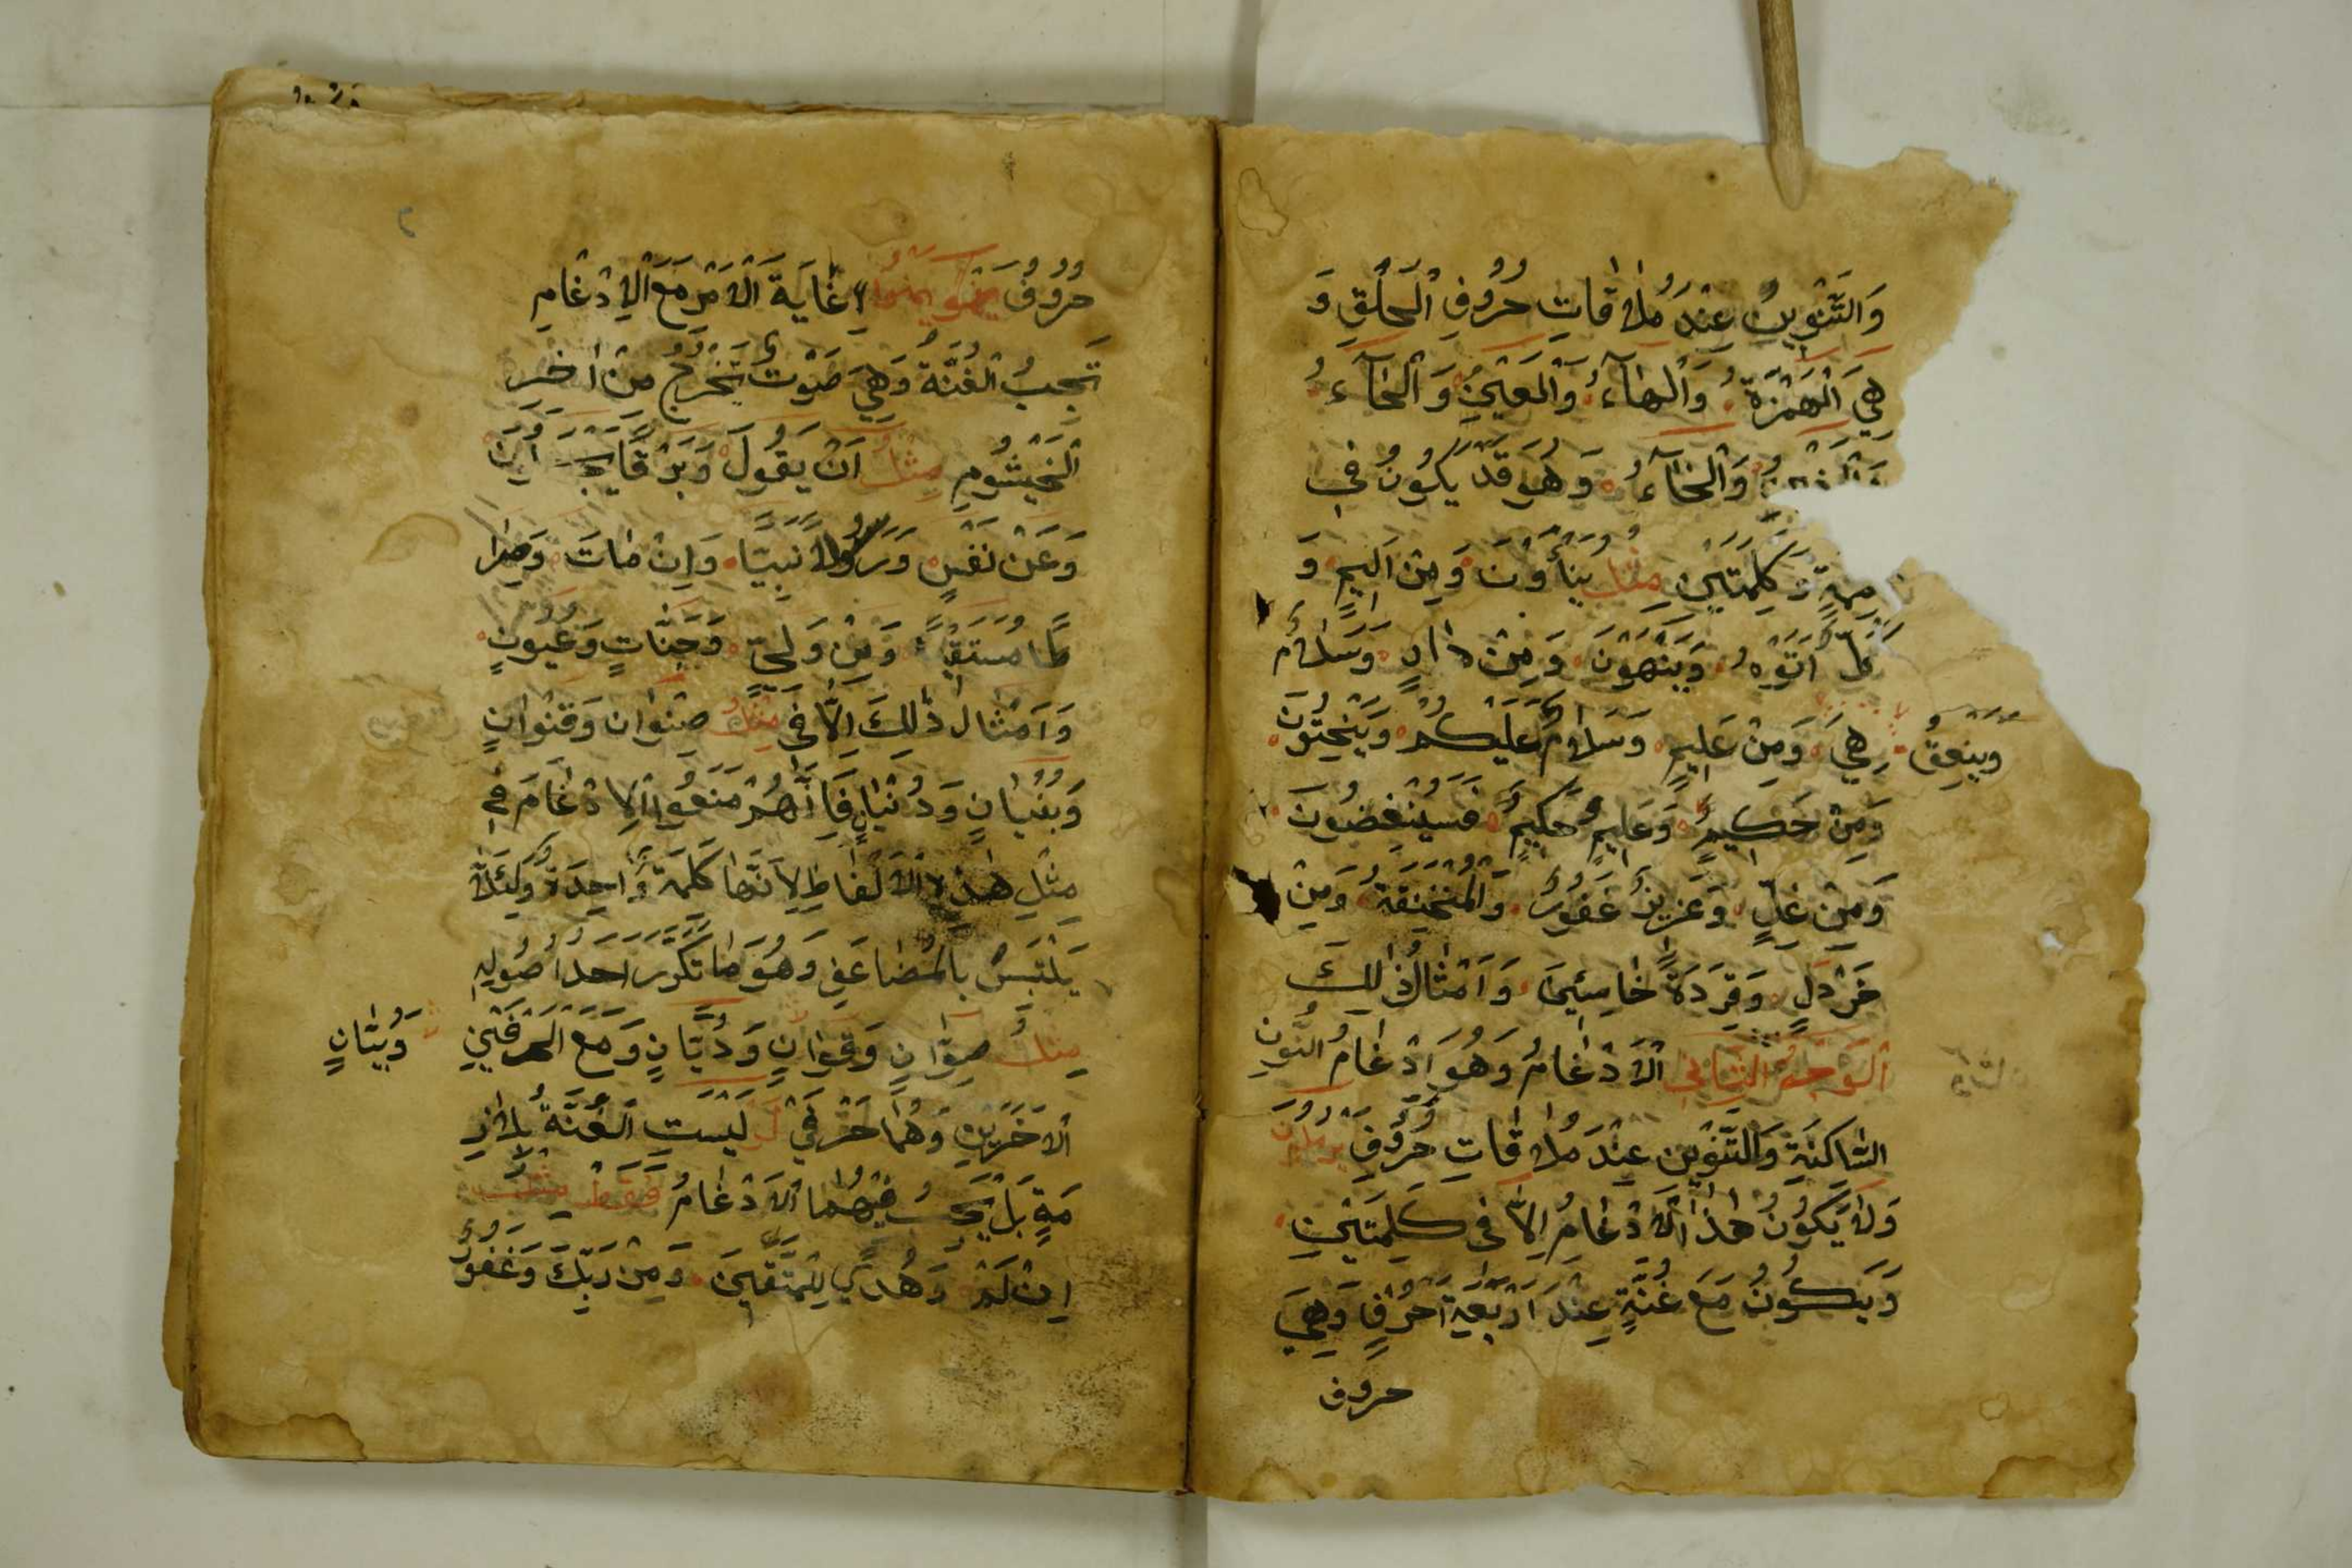 وَالتَّنْوِينُ عِنْدَ مُلَاقَاتِ حُرُوفِ الْحَلْقِ وَ
هِيَ الْهَمْزَةُ وَالْهَاءُ وَالْعَيْنُ وَالْحَاءُ
وَالْخَاءُ وَهُوَ قَدْ يَكُونُ فِي
كَلِمَتَيْنِ مِثْلُ يَنْأَوْنَ وَمِنْ أَلِيمٍ وَ
كُلٌّ أَتَوْهُ وَيَنْهَوْنَ وَمِنْ هَادٍ وَسَلَامٌ
هِيَ وَمِنْ عَلِيمٍ وَسَلَامٌ عَلَيْكُمْ وَيَنْحِتُونَ
وينعِقُ
وَمِنْ حَكِيمٍ وَعَلِيمٌ حَكِيمٌ فَسَيُنْغِضُونَ
وَمِنْ غِلٍّ وَعَزِيزٌ غَفُورٌ وَالْمُنْخَنِقَةُ وَمِنْ
خَرْدَلٍ وَقِرَدَةً خَاسِئِينَ وَأَمْثَالُ ذٰلِكَ
الْوَجْهُ الثَّانِي الْاِدْغَامُ وَهُوَ اِدْغَامُ النُّونِ
السَّاكِنَةِ وَالتَّنْوِينِ عِنْدَ مُلَاقَاتِ حُرُوفِ يرملون
وَلَا يَكُونُ هٰذَا الْاِدْغَامُ اِلَّا فِي كَلِمَتَيْنِ
وَيَكُونُ مَعَ غُنَّةٍ عِنْدَ اَرْبَعَةِ اَحْرُفٍ وَهِيَ
حروف
حُرُوفُ لِاَ غَايَةَ الْاَمْرِ مَعَ الْاِدْغَامِ
تَجِبُ الْغُنَّةُ وَهِيَ صَوْتٌ يَخْرُجُ مِنْ اٰخِرِ
الْخَيْشُومِ مِثْلُ اَنْ يَقُولَ وَبَرْقٌ يَجْـ اِنَ
وَعَنْ نَفْسٍ وَرَسُولًا نَبِيًّا وَاِنْ مَاتَ وَصِرَا
طًا مُسْتَقِيمًا وَمِنْ وَلِيٍّ وَجَنَّاتٍ وَعُيُونٍ
وَاَمْثَالُ ذٰلِكَ اِلَّا فِي مِثْلِ صِنْوَانٍ وَقِنْوَانٍ
وَبُنْيَانٍ وَدُنْيَا فَاِنَّهُمْ مَنَعُوا الْاِدْغَامَ فِي
مِثْلِ هٰذِهِ الْاَلْفَاظِ لِاَنَّهَا كَلِمَةٌ وَاحِدَةٌ وَلِئَلَّا
يَلْتَبِسَ بِالْمُضَاعَفِ وَهُوَ مَا تَكَرَّرَ اَحَدُ اُصُولِهِ
مِثْلُ صِوَّانٍ وَقِوَّانٍ وَدُيَّانٍ وَمَعَ الْحَرْفَيْنِ
وَبُيَّانٍ
الْاٰخَرَيْنِ وَهُمَا حَرْفَيْ لَرْ لَيْسَتِ الْغُنَّةُ بِلَازِ
مَةٍ بَلْ يَجِبُ فِيهِمَا الْاِدْغَامُ فَقَطْ مِثْلُ
اِنْ لَمْ وَهُدًى لِلْمُتَّقِينَ وَمِنْ رَبِّكَ وَغَفُورٌ